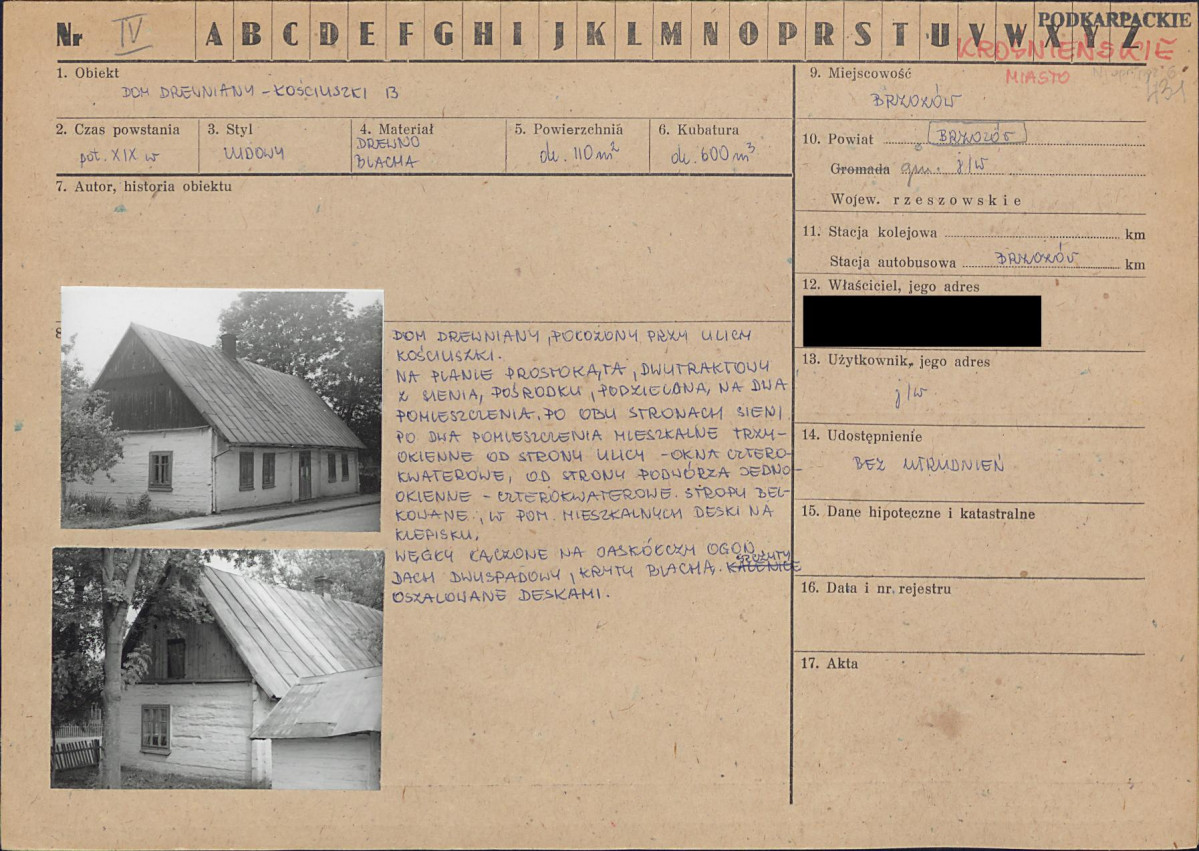 Nr IV A B C D E F G H I J K L M N O P R S T U V W X Y Z
PODKARPACKIE
KROŚNIEŃSKIE
MIASTO
431
1. Obiekt
DOM DREWNIANY - KOŚCIUSZKI 13
2. Czas powstania
poł. XIX w
3. Styl
LUDOWY
4. Materiał
DREWNO
BLACHA
5. Powierzchnia
ok. 110 m²
6. Kubatura
ok. 600 m³
7. Autor, historia obiektu
8
DOM DREWNIANY, POŁOŻONY PRZY ULICY
KOŚCIUSZKI.
NA PLANIE PROSTOKĄTA, DWUTRAKTOWY
Z SIENIĄ, POŚRODKU, PODZIELONĄ, NA DWA
POMIESZCZENIA. PO OBU STRONACH SIENI
PO DWA POMIESZCZENIA MIESZKALNE TRZY-
OKIENNE OD STRONY ULICY - OKNA CZTERO-
KWATEROWE, OD STRONY PODWÓRZA JEDNO-
OKIENNE - CZTEROKWATEROWE. STROPY BEL-
KOWANE, W POM. MIESZKALNYCH DESKI NA
KLEPISKU,
WĘGŁY ŁĄCZONE NA JASKÓŁCZY OGON
DACH DWUSPADOWY, KRYTY BLACHĄ. KALENICE SZCZYTY
OSZALOWANE DESKAMI.
9. Miejscowość
BRZOZÓW
10. Powiat BRZOZÓW
Gromada gm. j/w
Wojew. rzeszowskie
11. Stacja kolejowa km
Stacja autobusowa BRZOZÓW km
12. Właściciel, jego adres
13. Użytkownik, jego adres
j/w
14. Udostępnienie
BEZ UTRUDNIEŃ
15. Dane hipoteczne i katastralne
16. Data i nr. rejestru
17. Akta